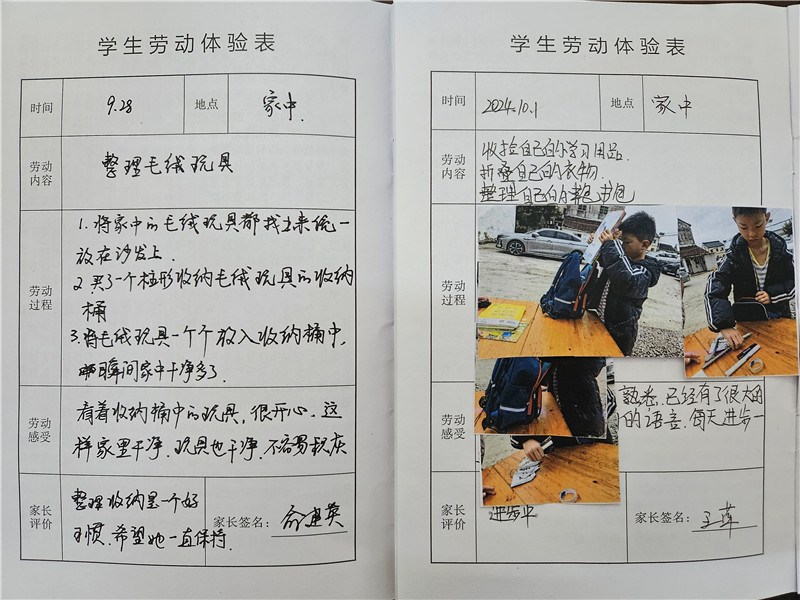 学生劳动体验表
时间 9.28 地点 家中.
劳动内容 整理毛绒玩具
劳动过程
1. 将家中的毛绒玩具都找出来统一
放在沙发上.
2. 买了一个柱形收纳毛绒玩具的收纳
桶
3. 将毛绒玩具一个个放入收纳桶中,
瞬间家中干净多了.
劳动感受
看着收纳桶中的玩具,很开心、这
样家里干净.玩具也干净.不容易积灰
家长评价
整理收纳是一个好
习惯.希望她一直保持.
家长签名:
学生劳动体验表
时间 2024.10.1 地点 家中
劳动内容
收拾自己的学习用品.
折叠自己的衣物.
整理自己的书包
劳动过程
劳动感受
熟悉.已经有了很大的
的语言.每天进步一
家长评价
进步中
家长签名: 王萍